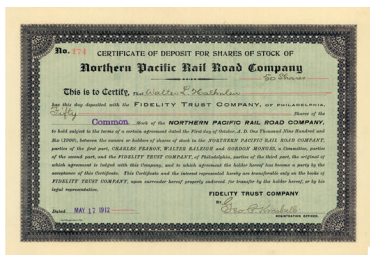 No. 174
CERTIFICATE OF DEPOSIT FOR SHARES OF STOCK OF
Northern Pacific Rail Road Company
50 Shares
This is to Certify, That Walter L.
has this day deposited with the FIDELITY TRUST COMPANY, OF PHILADELPHIA,
Fifty Shares of the
Common Stock of the NORTHERN PACIFIC RAIL ROAD COMPANY,
to hold subject to the terms of a certain agreement dated the First day of October, A. D. One Thousand Nine Hundred and
Six (1906), between the owners or holders of shares of stock in the NORTHERN PACIFIC RAIL ROAD COMPANY,
parties of the first part, CHARLES PEARSON, WALTER RALEIGH and GORDON MONGES, a Committee, parties
of the second part, and the FIDELITY TRUST COMPANY, of Philadelphia, parties of the third part, the original of
which agreement is lodged with this Company, and to which agreement the holder hereof has become a party by the
acceptance of this Certificate. This Certificate and the interest represented hereby are transferable only on the books of
FIDELITY TRUST COMPANY, upon surrender hereof properly endorsed for transfer by the holder hereof, or by his
legal representative.
FIDELITY TRUST COMPANY
BY
Geo. H. Kimball
REGISTRATION OFFICER.
Dated MAY 17 1912